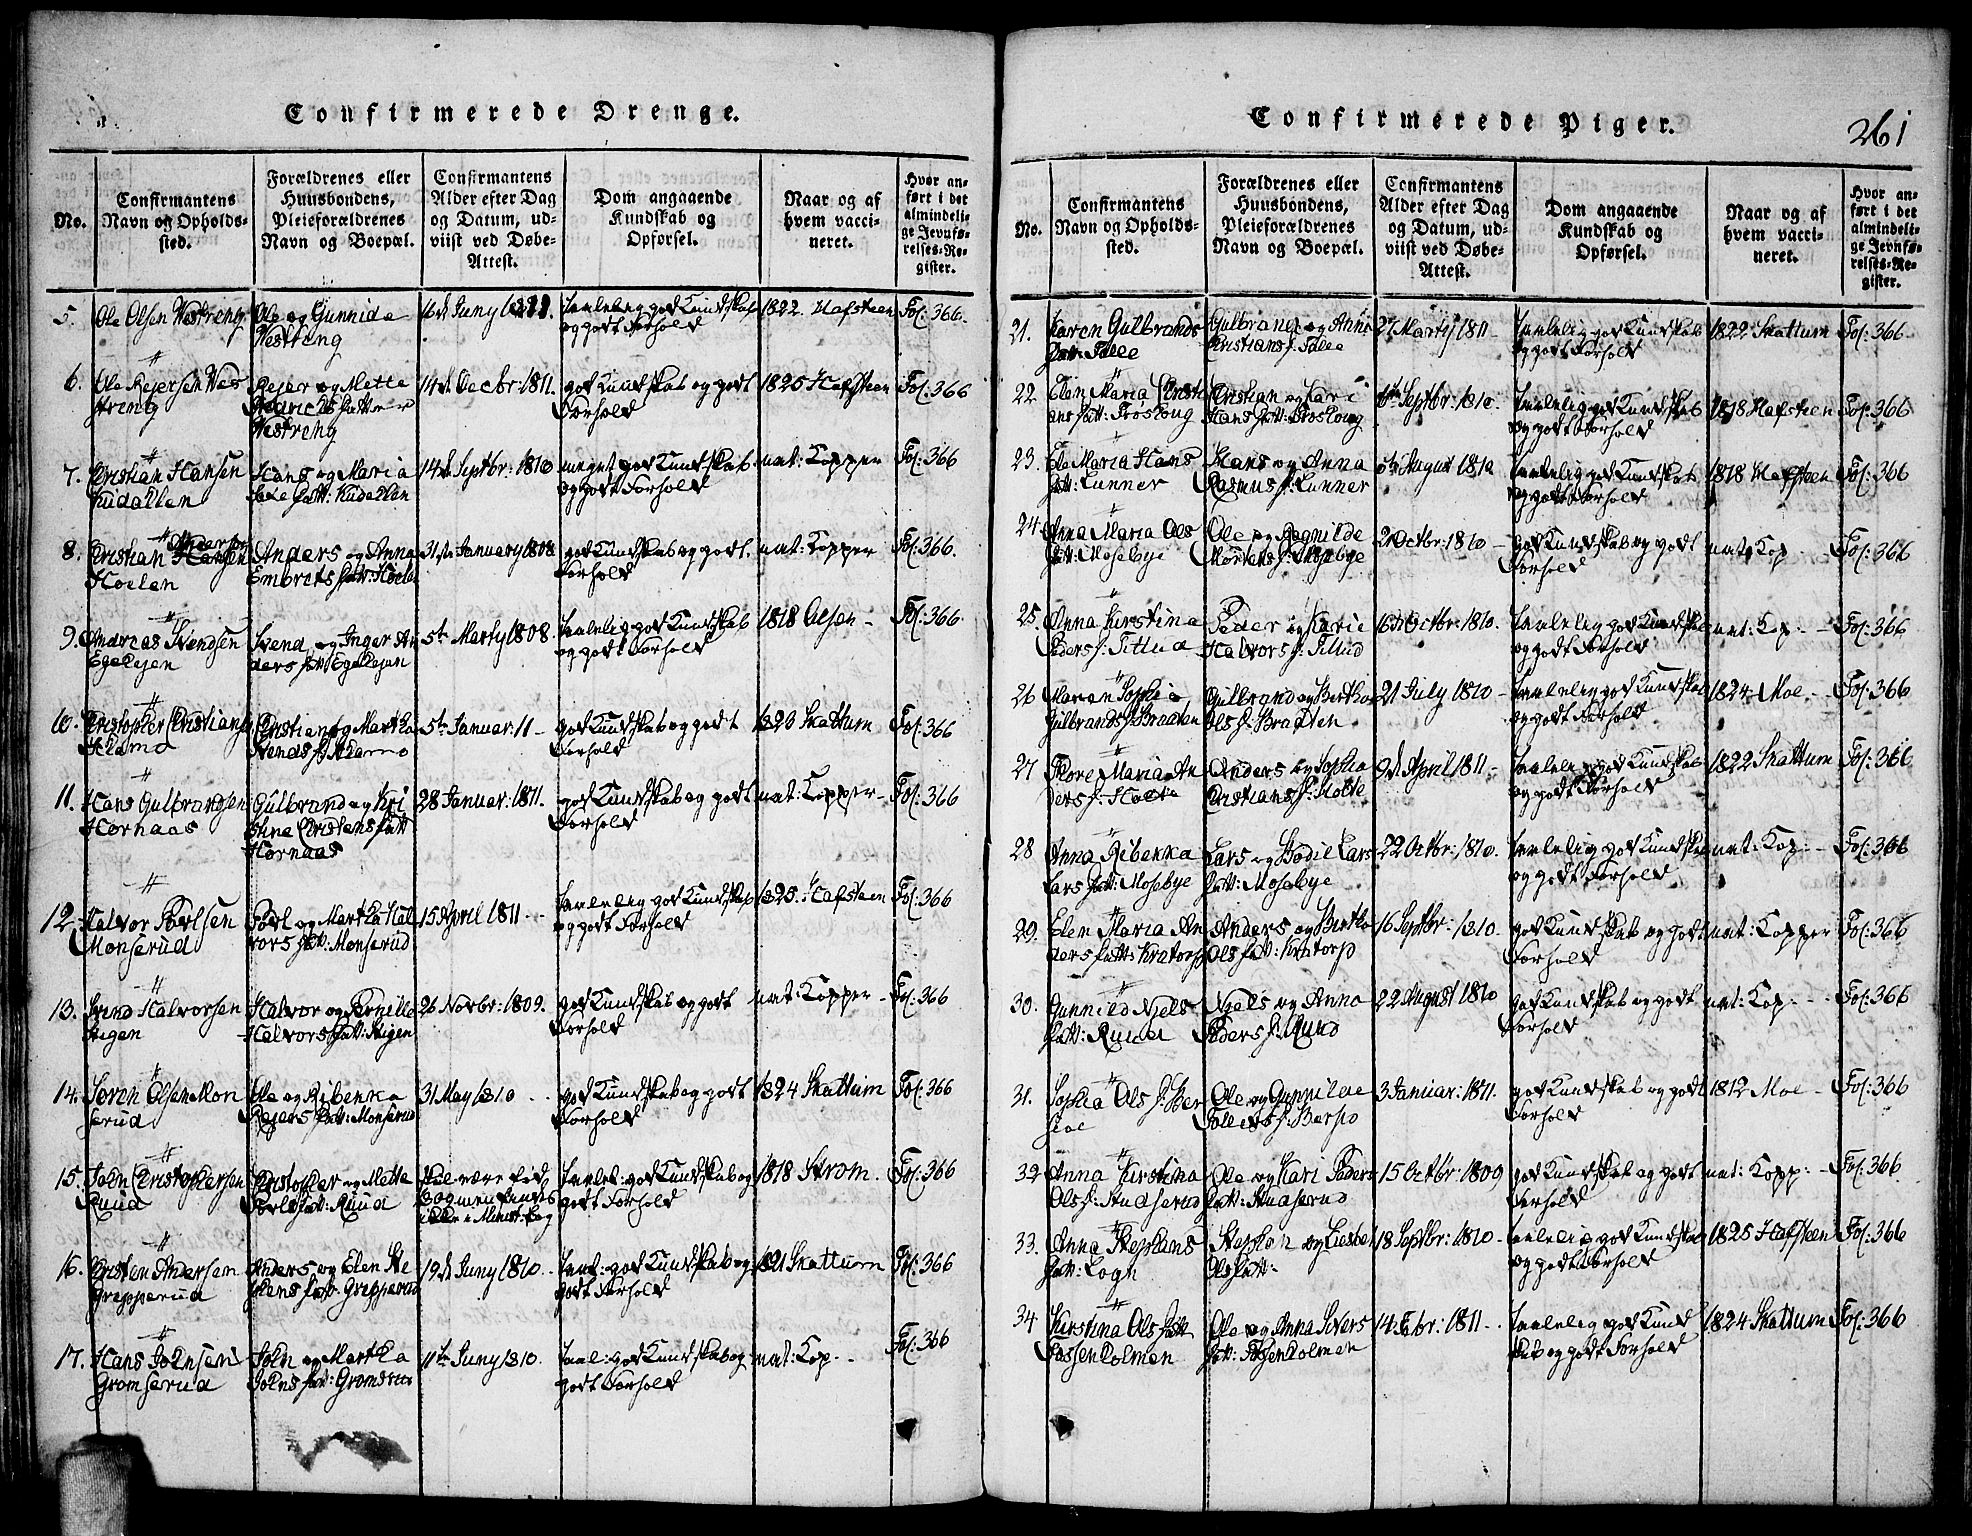 Confirmerede Drenge.
No.
Confirmantens
Navn og Opholds-
sted.
Forældrenes eller
Huusbondens,
Pleieforældrenes
Navn og Boepæl.
Confirmantens
Alder efter Dag
og Datum, ud-
viist ved Døbe-
Attest.
Dom angaaende
Kundskab og
Opførsel.
Naar og af
hvem vacci-
neret.
Hvor an-
ført i det
almindeli-
ge Jevnfø-
relses-Re-
gister.
5. Ole Olsen Westreng
Ole og Gunnild
Westreng
16de Juny
taalelig god Kundskab
og godt Forhold
1822. Hafsteen
Fol: 366.
6. Ole Rejersen Wes
treng
Rejer og Mette
Westreng
14de Decbr: 1811.
god Kundskab og godt
Forhold
1825 Hafsteen
Fol: 366
7. Cristian Hansen
Kudalen
Hans og Maria
14de Septbr: 1810
meget god Kundskab
og godt Forhold
nat: Kopper
Fol: 366
8. Cristian Anders
Hoelen
Anders og Anna
Embrets fatt: Hoele
31te January 1808.
god Kundskab og godt
Forhold
nat: Kopper
Fol: 366.
9. Andreas Svendsen
Egelejen
Svend og Inger An
ders fatt: Egelejen
5te Marty 1808.
taalelig god Kundskab
og godt Forhold
1818 Olsen
Fol: 366
10. Cristopher Cristians
Cristian og Martha
Svends f:
5te Januar: 11
god Kundskab og godt
Forhold
1823 Skattum
Fol: 366
11. Hans Gulbrandsen
Hornaas
Gulbrand og Kri
stine Cristens fatt
Hornaas
28 Januar: 1811.
god Kundskab og godt
Forhold
nat: Kopper
Fol: 366
12. Halvor Povlsen
Monserud
Povl og Martha Hal
vors fatt: Monserud
15 April 1811
taalelig god Kundskab
og godt Forhold
1825. Hafsteen
Fol: 366
13. Svend Halvorsen
Stigen
Halvor og Pernille
Halvors fatt: Stigen
26 Novbr: 1809.
god Kundskab og godt
Forhold
nat: Kopper
Fol: 366
14. Søren Olsen Mon
serud
Ole og Ribekka
Rejers fatt: Monserud
31 May 1810
god Kundskab og godt
Forhold
1824 Skattum
Fol: 366
15. John Cristophersen
Ruud
Cristopher og Mette
Povls fatt: Ruud
Skal være fød
ikke i Minist: bog
taalel: god Kundskab og
godt Forhold
1818 Strøm.
Fol: 366
16. Cristen Andersen
Grepperud
Anders og Elen Ste
phens fatt: Grepperud
19de Juny 1810.
taal: god Kundskab og
godt Forhold
1821 Skattum
Fol: 366
17. Hans Johnsen
Gromserud
John og Martha
Johns fatt: Gromserud
11te Juny 1810.
taal: god Kundskab og
godt Forhold
nat: Kop.
Fol: 366
Confirmerede Piger.
261
No.
Confirmantens
Navn og Opholds-
sted.
Forældrenes eller
Huusbondens,
Pleieforældrenes
Navn og Boepæl.
Confirmantens
Alder efter Dag
og Datum, ud-
viist ved Døbe-
Attest.
Dom angaaende
Kundskab og
Opførsel.
Naar og af
hvem vacci-
neret.
Hvor an-
ført i det
almindeli-
ge Jevnfø-
relses-Re-
gister.
21. Karen Gulbrands
fatt: Falle
Gulbrand og Anne
Cristians f: Falle
2de Marty 1811
taalelig god Kundskab
og godt Forhold
1822 Skattum
Fol: 366
22. Elen Maria Cristi
ans fatt: Froshoug
Cristian og Kari
Hans fatt: Froshoug
Septbr: 1810.
taalelig god Kundskab
og godt Forhold
1818 Hafsteen
Fol: 366
23. Maria Hans
fatt: Lunner
Hans og Anna
Rasmus f: Lunner
August 1810
taalelig god Kundskab
og godt Forhold
1818 Hafsteen
Fol: 366
24. Anna Maria Ols
fatt: Mosebye
Ole og Ragnilde
Mortens f: Mosebye
Octbr: 1810
god Kundskab og godt
Forhold
nat: Kop
Fol: 366
25. Anna Kirstina
Peders f: Tillud
Peder og Karie
Halvors f: Tillud
16de Octbr: 1810.
taalelig god Kundskab
og godt Forhold
nat: Kop:
Fol: 366
26 Maren Sophia
Gulbrands f: Braaten
Gulbrand og Bertha
Ols f: Braaten
21 July 1810
taalelig god Kundskab
og godt Forhold
1824 Moe
Fol: 366
27 Maria An
ders f: Holte
Anders og Sophia
Cristians f: Holte
9de April 1811
taalelig god Kundskab
og godt Forhold
1822 Skattum
Fol: 366
28 Anna Ribekka
Lars fatt: Mosebye
Lars og Bodil Lars
fatt: Mosebye
22 Octbr: 1810.
taalelig god Kundskab
og godt Forhold
nat: Kop:
Fol: 366
29. Elen Maria An
ders fatt: Kratorp
Anders og Bertha
Ols fatt: Kratorp
16 Septbr: 1810.
god Kundskab og godt
Forhold
nat: Kopper
Fol: 366
30. Gunnild Njels
fatt: Ruud
Njels og Anna
Peders f: Ruud
22 August 1810
god Kundskab og godt
Forhold
nat: Kop:
Fol: 366
31. Sophia Ols f: Ber
Ole og Gunnilde
3 Januar: 1811.
god Kundskab og godt
Forhold
1812 Moe
Fol: 366
32 Anna Kirstina
Ols f: Studserud
Ole og Kari Peders
fatt: Studserud
15 Octbr: 1809
god Kundskab og godt
Forhold
nat: Kopp:
Fol: 366
33. Anna Stephans
fatt: Logn
Stephan og Liesbet
Ols fatt:
18 Septbr: 1810.
taalelig god Kundskab
og godt Forhold
1825 Hafsteen
Fol: 366
34 Kirstina Ols fatt
Fossenholmen
Ole og Anna Sivers
fatt: Fossenholmen
14 Febr: 1811
taalelig god Kund
skab og godt Forhold
1824 Skattum
Fol: 366